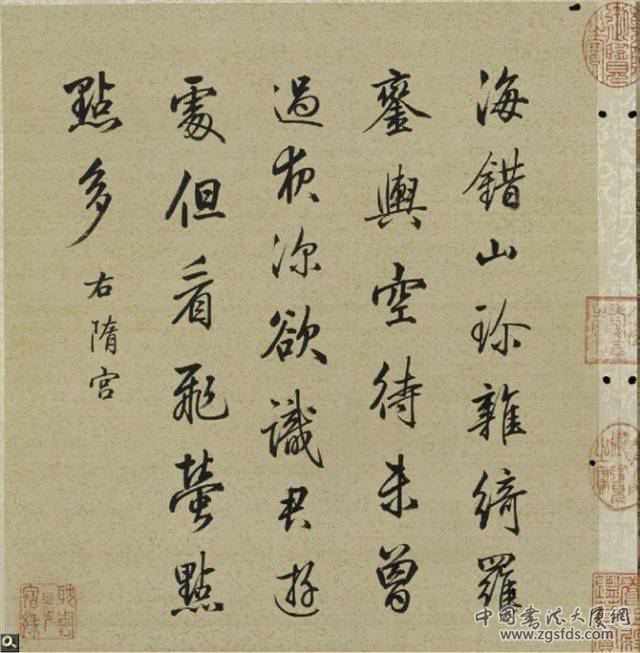 海錯山珍雜綺羅
鑾輿空待未曾
過夜深欲識君遊
處但看飛螢點
點多
右隋宮
中国书法大厦網
www.zgsfds.com